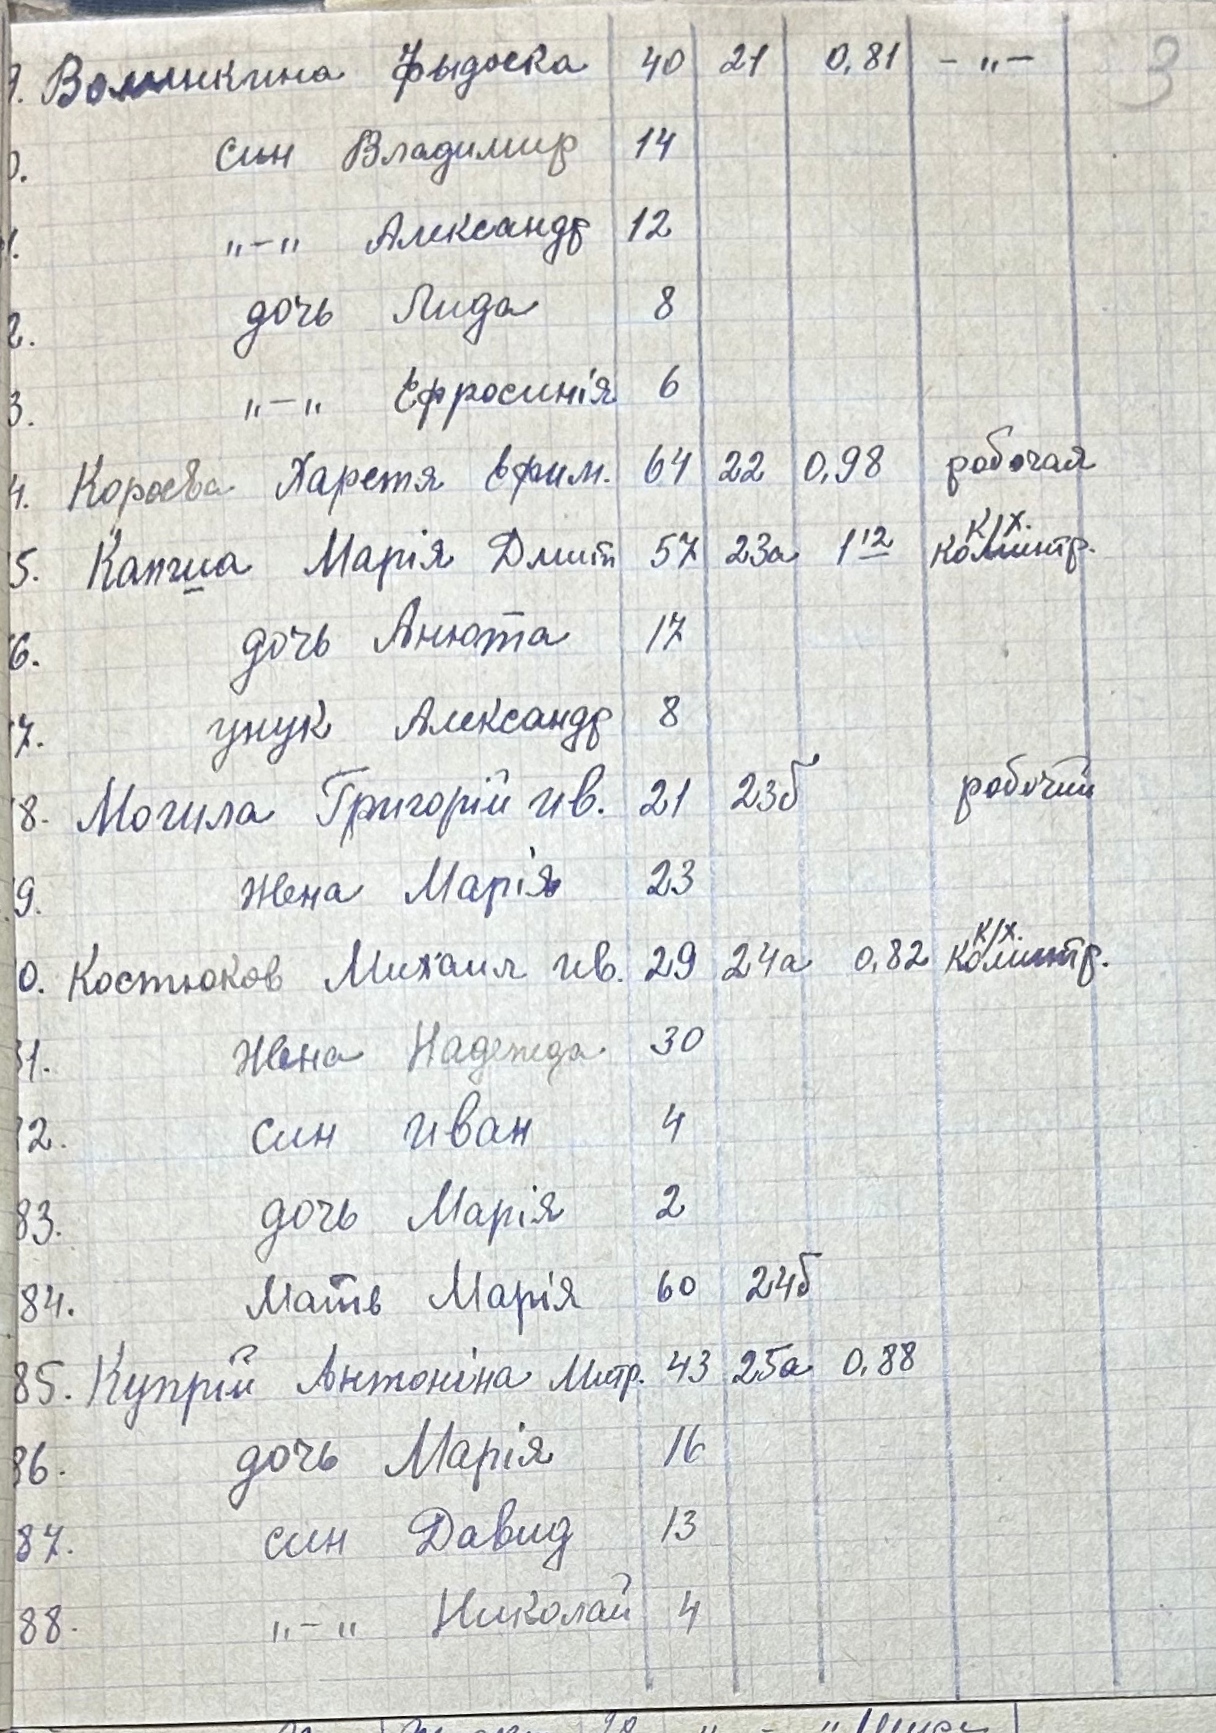 3
9. Волинкина Фыдоска 40 21 0,81 - „ -
0. син Владимир 14
1. „-„ Александр 12
2. дочь Лида 8
3. „-„ Ефросинія 6
4. Короева Харетя Ефим. 64 22 0,98 робочая
5. Капгиа Марія Дмит 57 23а 1 12 к/х. комингр.
6. дочь Анюта 17
7. унук Александр 8
8. Могила Григорій ив. 21 23б робочий
9. жена Марія 23
0. Костюков Михаил ив. 29 24а 0,82 к/х.
31. жена Надежда 30
12. син иван 4
83. дочь Марія 2
84. Мать Марія 60 24б
85. Купрій Антоніна Митр. 43 25а 0,88
86. дочь Марія 16
87. син Давид 13
88. „-„ Николай 4